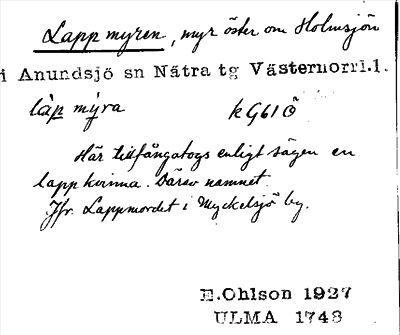 Lappmyren, myr öster om Holmsjön
i Anundsjö sn Nätra tg Västernorrl.l.
làp mýra kG61ö
Här tillfångatogs enligt sägen en
lappkvinna. Därav namnet.
Jfr. Lappmordet i Myckelsjö by.
E.Ohlson 1927
ULMA 1748